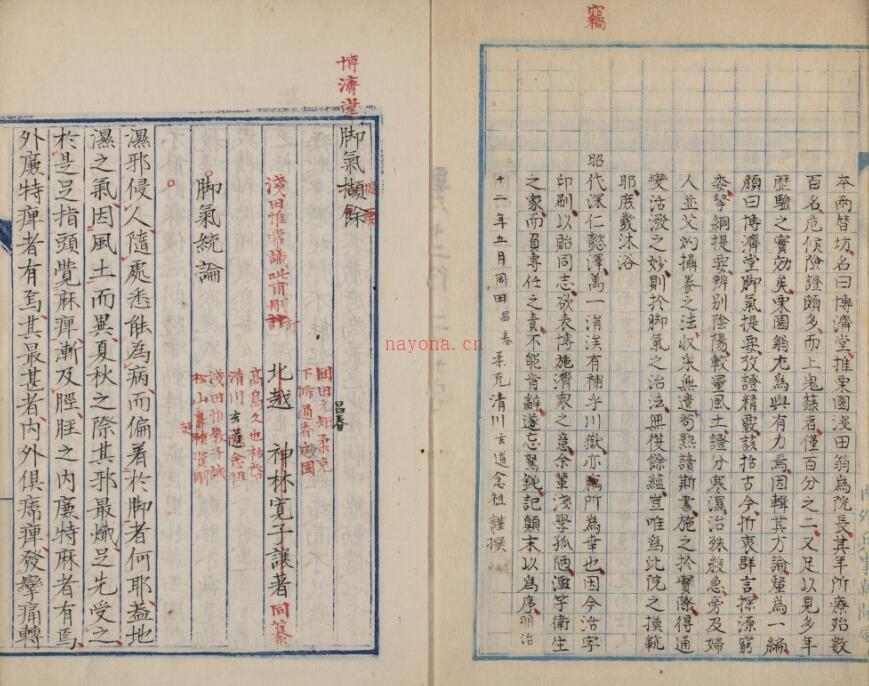 竊
本両替坊名曰博濟堂推栗園淺田翁為院長其年所療殆數
百名危候險證頗多而上鬼籙者僅百分之二又足以見多年
歷驗之實効矣栗園翁尤為與有力焉因輯其方論釐為一編
顔曰博濟堂脚氣提要攷證精覈該括古今折衷群言探源窮
委挈綱提要辨別陰陽較量風土證分寒濕治殊緩急旁及婦
人並艾灼攝養之法収采無遺苟熟讀斯書施之於實際得通
變活潑之妙則於脚氣之治法無復餘蘊豈唯為此院之模範
耶庶幾沐浴
昭代深仁懿澤萬一涓涘有補乎川嶽亦為所為幸也因今活字
印刷以貽同志欲表博施濟衆之意余輩淺學孤陋濫竽衛生
之家而負專任之責不能肯辭遂忘駑鈍記顛末以為序明治
十二年五月岡田昌春柔克清川玄道念祖謹撰
内外兵事新聞局
博濟堂
脚氣擷餘 提要
淺田惟常識此甫刪訂
北越 神林寛子讓著 同纂
昌春
下條通春
高島久也祐啓
清川玄道念祖
脚氣統論
濕邪侵人隨處悉能為病而偏着於脚者何耶蓋地
濕之氣因風土而異夏秋之際其邪最熾足先受之
於是足指頭覺麻痺漸及脛脛之内廉特麻者有焉
外廉特痺者有焉其最甚者内外俱痛痺發攣痛轉
nayona.cn